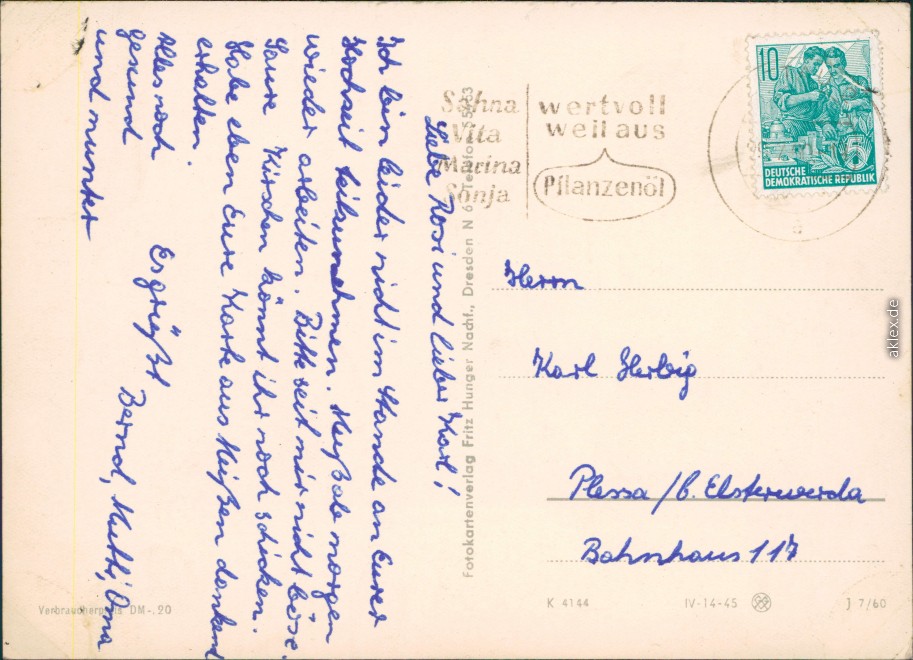 Liebe Rosi und lieber Karl!
Ich bin leider nicht im Stande an Eurer
Hochzeit teilzunehmen. Muß ab morgen
wieder arbeiten. Bitte seit mir nicht böse.
Saure Kirschen könnt ihr noch schicken.
Habe eben Eure Karte aus Meißen dankend
erhalten.
Alles noch
gesund
und munter
Es grüßt
Bernd, Mutti, Oma
Sahna
Vita
Marina
Sonja
wertvoll
weil aus
Pflanzenöl
10
5
DEUTSCHE
DEMOKRATISCHE REPUBLIK
Herrn
Karl Herbig
Plessa /b. Elsterwerda
Bahnhaus 117
Fotokartenverlag Fritz Hunger Nachf., Dresden N 6 Telefon 55963
Verbraucherpreis DM -.20
K 4144
IV-14-45
J 7/60
aklex.de